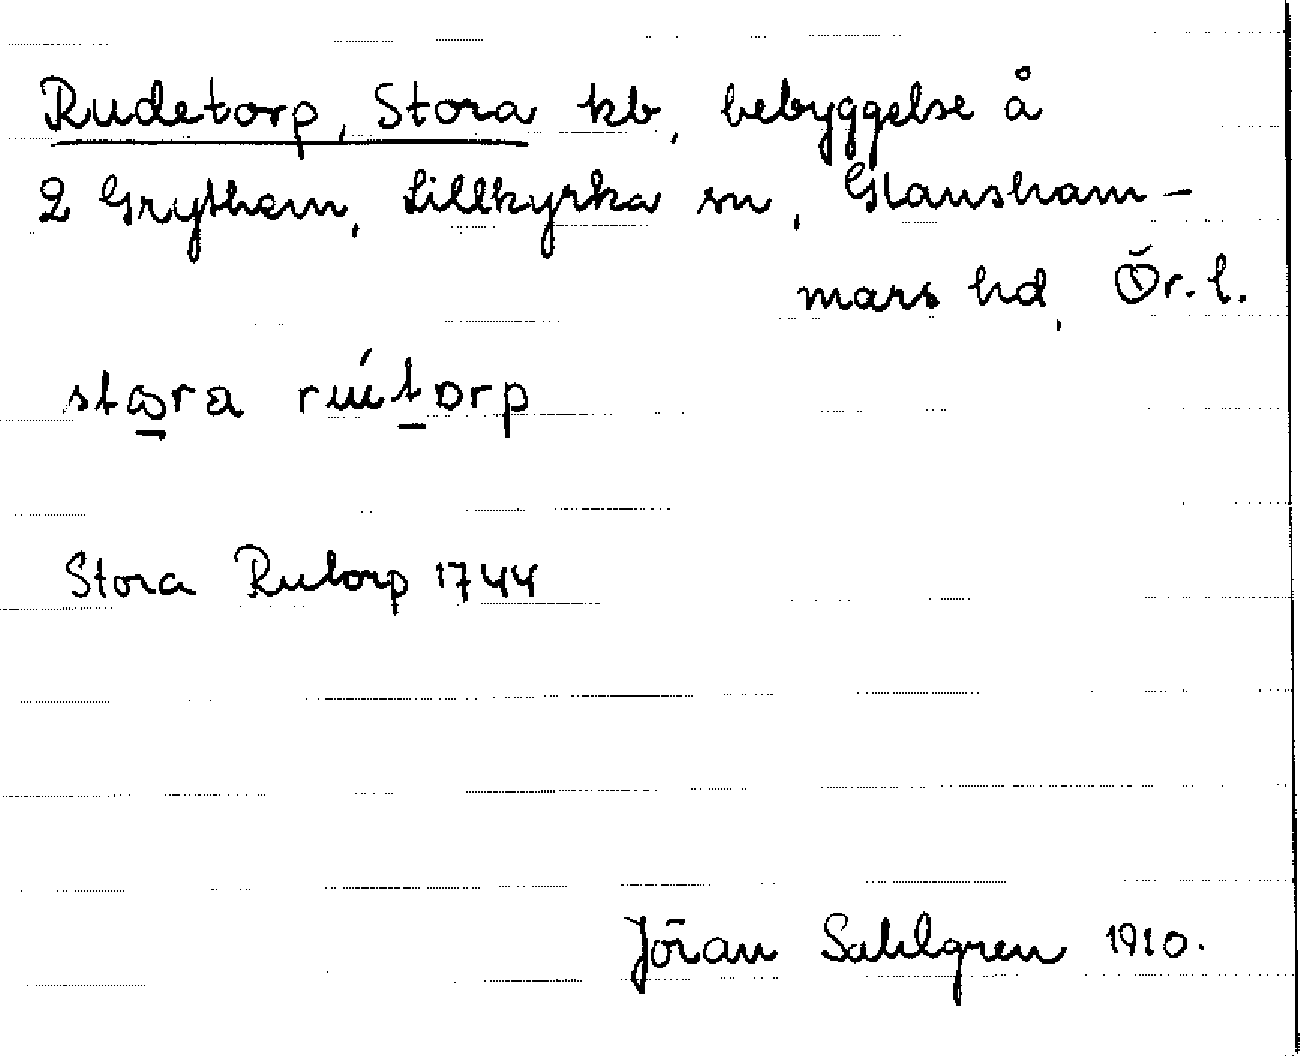 Rudetorp, Stora kb, bebyggelse å
2 Grythem, Lillkyrka sn, Glansham-
mars hd, Ör. l.
stɷra rútorp
Stora Rutorp 1744
Jöran Sahlgren 1910.